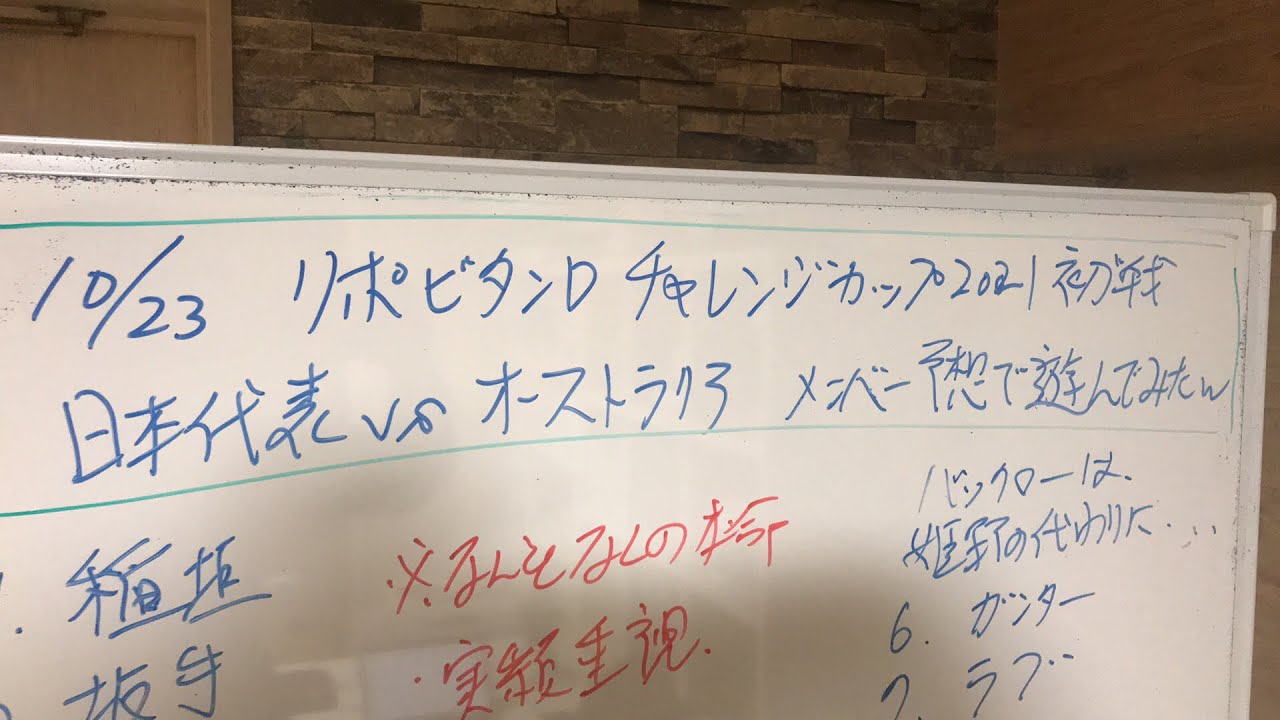 10/23 リポビタンD チャレンジカップ2021 初戦
日本代表 vs オーストラリア メンバー予想で遊んでみたw
稲垣
坂手
※なんそなしの
・実績重視.
バックローは、
姫野の代わりに・・・
6. ガンター
7. ラブ